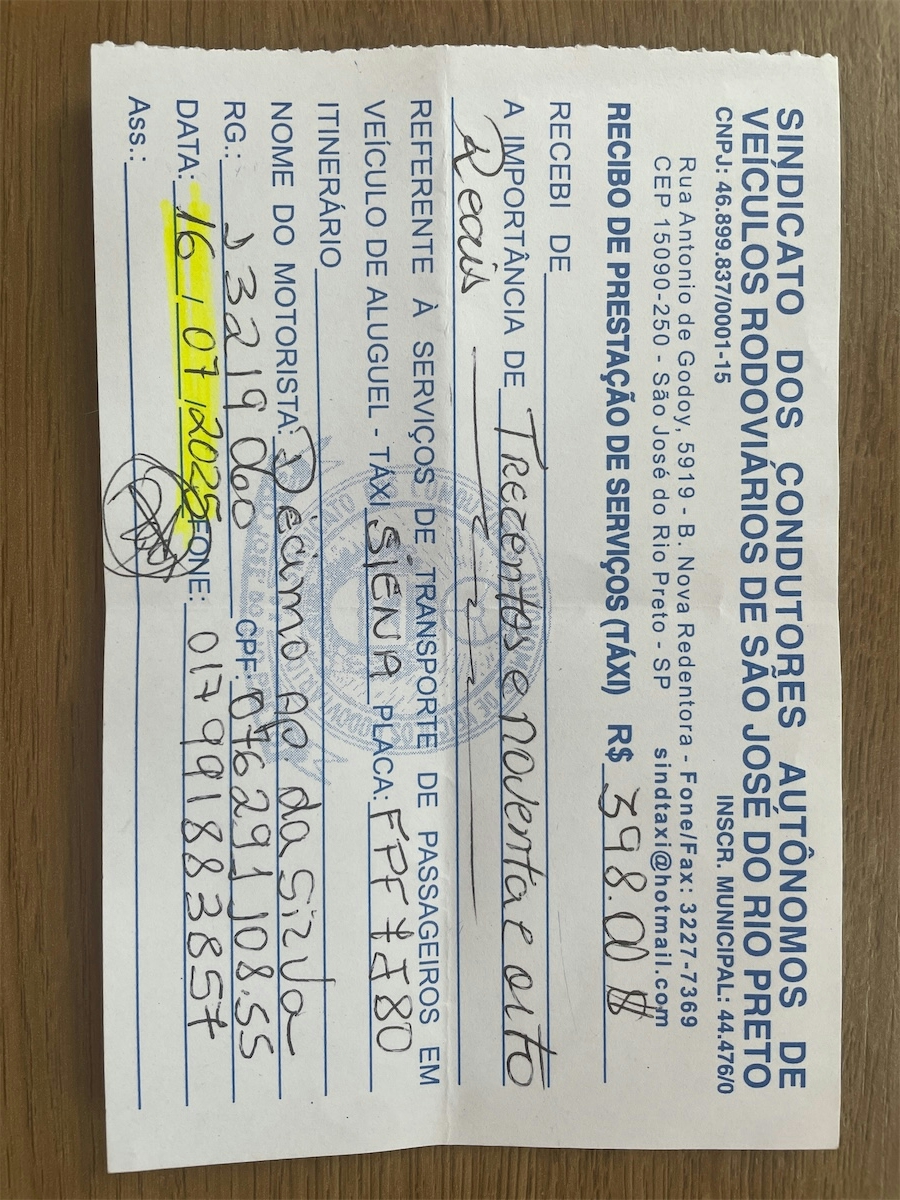 SINDICATO DOS CONDUTORES AUTÔNOMOS DE
VEÍCULOS RODOVIÁRIOS DE SÃO JOSÉ DO RIO PRETO
CNPJ: 46.899.837/0001-15 INSCR. MUNICIPAL: 44.476/0
Rua Antonio de Godoy, 5919 - B. Nova Redentora - Fone/Fax: 3227-7369
CEP 15090-250 - São José do Rio Preto - SP sindtaxi@hotmail.com
RECIBO DE PRESTAÇÃO DE SERVIÇOS (TÁXI) R$ 398.00 $
RECEBI DE
A IMPORTÂNCIA DE Trezentos e noventa e oito
Reais
REFERENTE À SERVIÇOS DE TRANSPORTE DE PASSAGEIROS EM
VEÍCULO DE ALUGUEL - TÁXI SIENA PLACA: FPF 7J80
ITINERÁRIO
NOME DO MOTORISTA: Decimo AP. da Silva
RG.: 13219060 CPF: 07629108.55
DATA: 16/07/2025 FONE: 017991883857
Ass.: